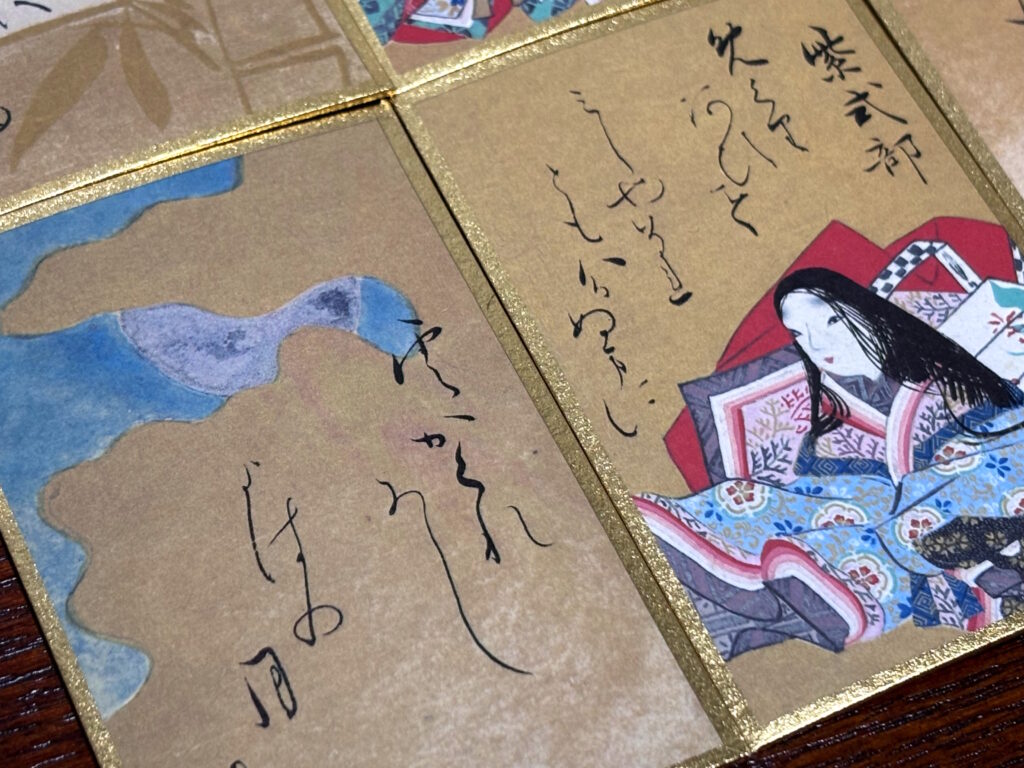 紫式部
めくり
あひて
みしやそれ
ともわかぬまに
雲かくれ
にし
よはの
月